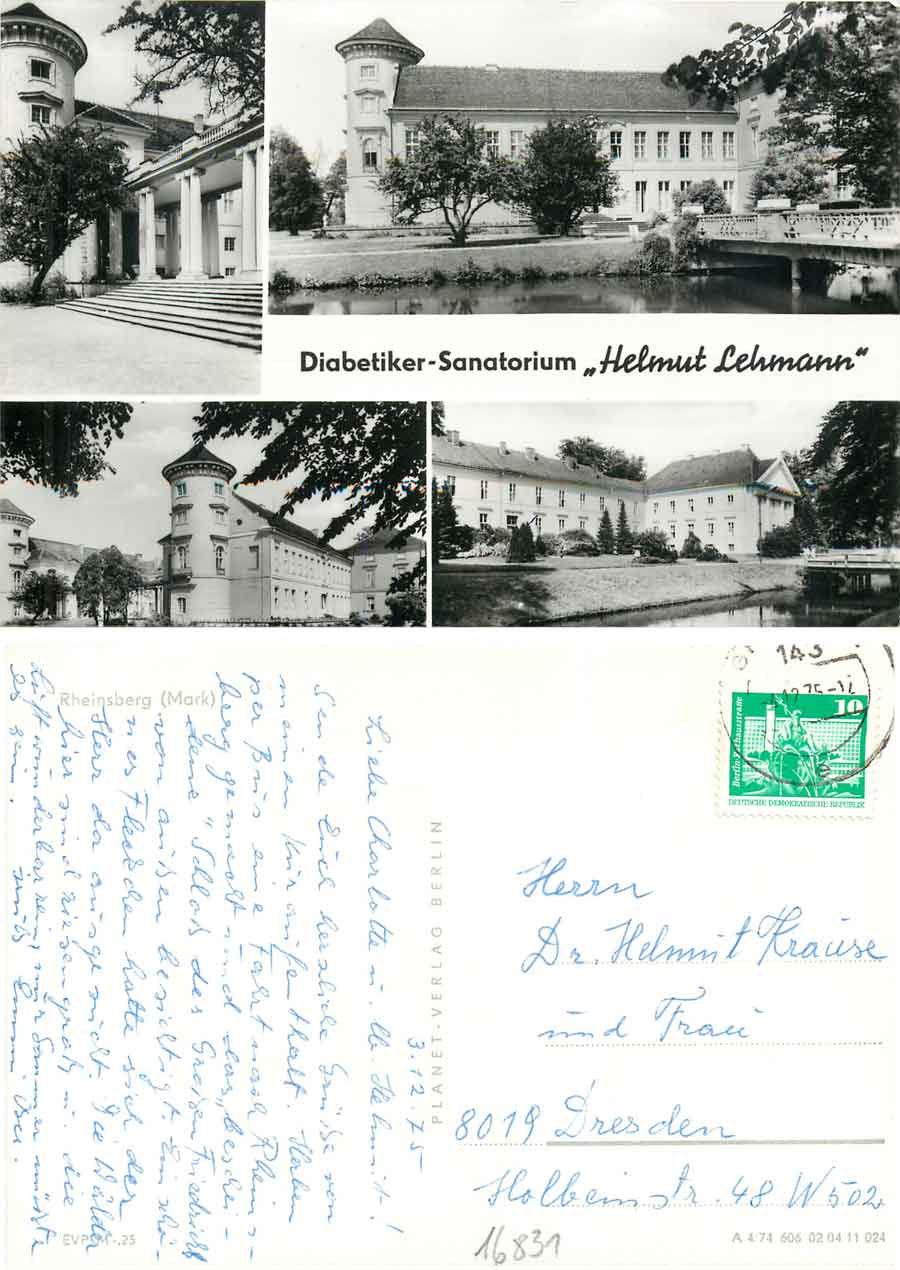 Diabetiker-Sanatorium „Helmut Lehmann“
Rheinsberg (Mark)
3.12.75
Liebe Charlotte u. lb. Helmut!
Sende Euch herzliche Grüße von
meinem Kuraufenthalt. Haben
per Bus eine Fahrt nach Rheins-
berg gemacht und das, beschei-
dene „Schloß des Großen Friedrich
von außen besichtigt. Ein schö-
nes Fleckchen hatte sich der
Herr da ausgesucht. Die Wälder
hier sind riesengroß u. die
Luft wunderbar rein, nur Sommer müßte
es sein.
PLANET-VERLAG BERLIN
143
12.75-12
10
Berlin-Rathausstraße
DEUTSCHE DEMOKRATISCHE REPUBLIK
Herrn
Dr. Helmut Krause
und Frau
8019 Dresden
Holbeinstr. 48 W 502
EVP M -,25
16831
A 4/74 606 02 04 11 024